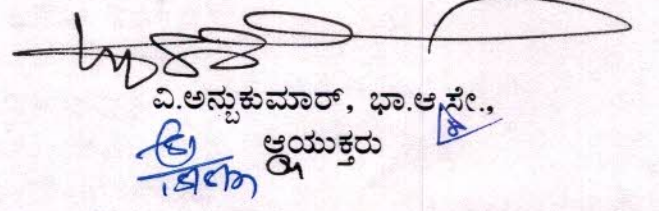 ವಿ.ಅನ್ಬುಕುಮಾರ್, ಭಾ.ಆ.ಸೇ.,
ಆಯುಕ್ತರು